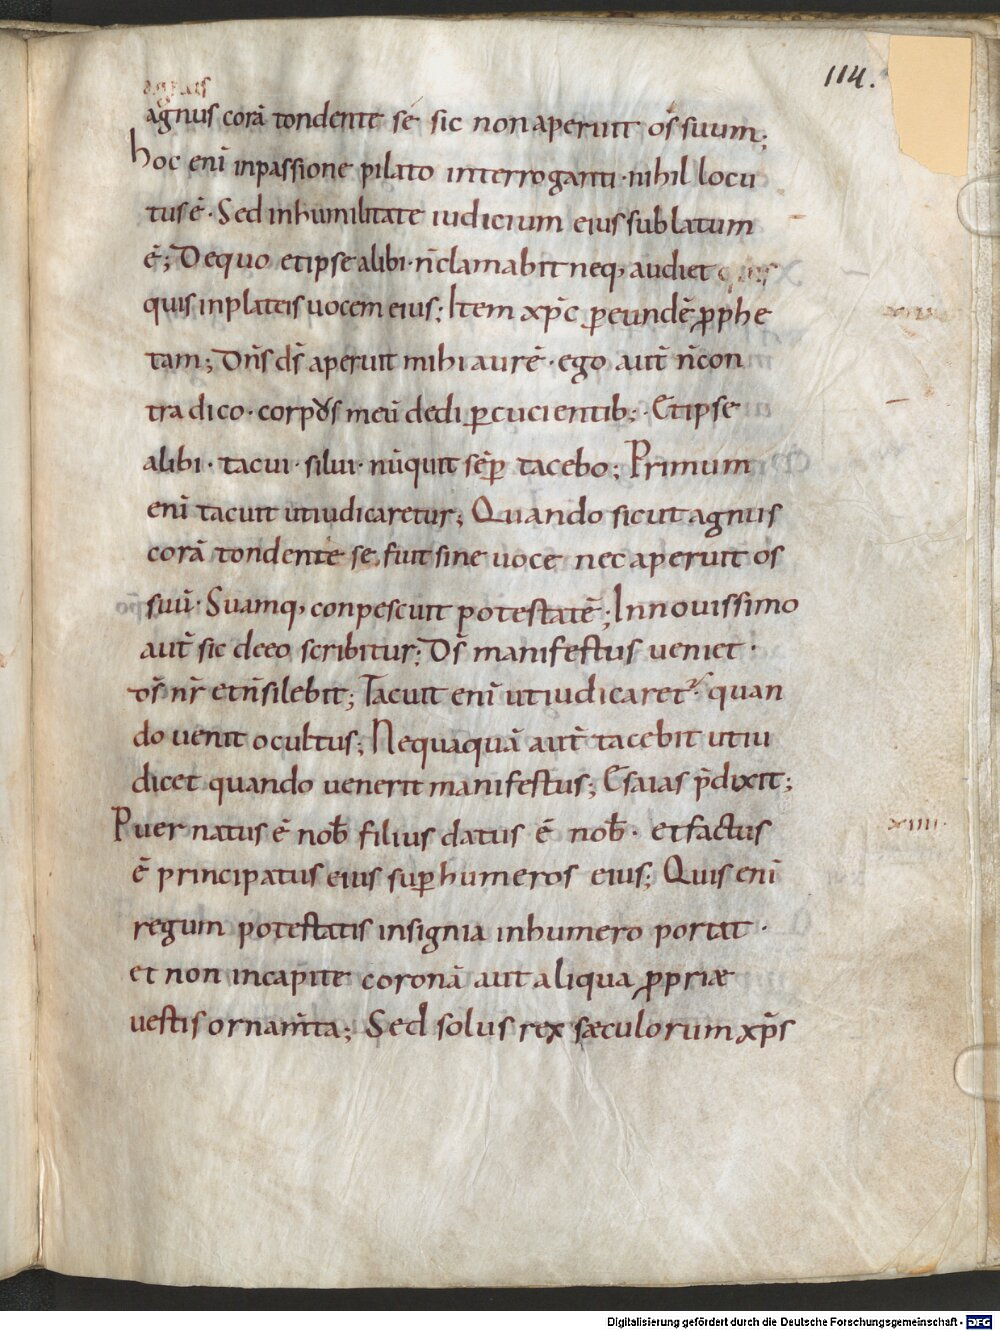 114.
agnus
agnus corā tondente se sic non aperuit os suum;
hoc enī inpassione pilato interroganti · nihil locu
tus ē · Sed inhumilitate iudicium eius sublatum
ē; De quo et ipse alibi · n̄ clamabit neq, audiet
quis inplateis uocem eius; Item xp̄c p̲ eundē p̲phe
tam; Dn̄s ds̄ aperuit mihi aurē · ego aut̄ n̄ con
tradico · corpus meū dedi p̲cucientib; · Et ipse
alibi · tacui · silui · nūquit sēp̲ tacebo; Primum
enī tacuit ut iudicaretur; Quando sicut agnus
corā tondente se, fuit sine uoce nec aperuit os
suū · Suamq, conpescuit potestatē; In nouissimo
aut̄ sic deeo scribitur; Ds̄ manifestus ueniet ·
ds̄ nr̄ et n̄ silebit; Tacuit enī ut iudicaret᷑ · quan
do uenit ocultus; Nequaquā aut̄ tacebit ut iu
dicet quando uenerit manifestus; Esaias p̄dixit;
xiiii·
Puer natus ē nob̄ filius datus ē nob̄ · et factus
ē principatus eius sup̲ humeros eius; Quis enī
regum potestatis insignia inhumero portat ·
et non incapite coronā aut aliqua p̲priæ
uestis ornam̄ta; Sed solus rex sæculorum xp̄s
Digitalisierung gefördert durch die Deutsche Forschungsgemeinschaft - DFG